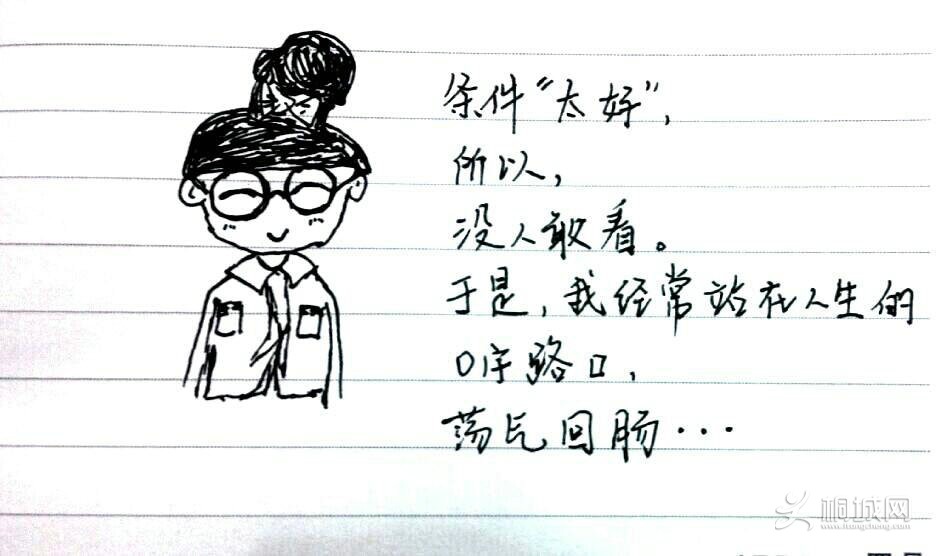 条件“太好”，
所以，
没人敢看。
于是，我经常站在人生的
O字路口，
荡气回肠···
桐城网